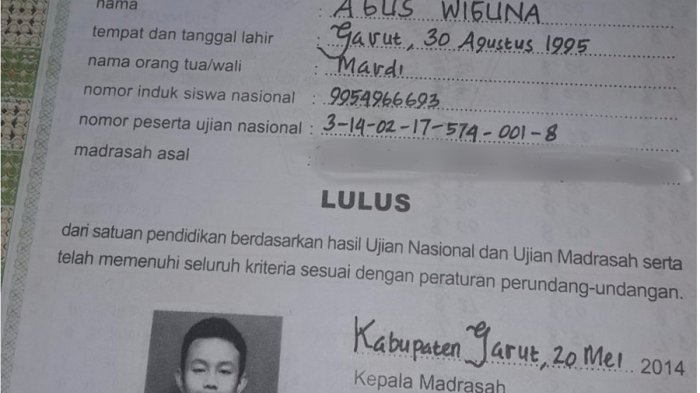 nama : AGUS WIGUNA
tempat dan tanggal lahir : Garut, 30 Agustus 1995
nama orang tua/wali : Mardi
nomor induk siswa nasional : 9954966693
nomor peserta ujian nasional : 3-14-02-17-574-001-8
madrasah asal :
LULUS
dari satuan pendidikan berdasarkan hasil Ujian Nasional dan Ujian Madrasah serta
telah memenuhi seluruh kriteria sesuai dengan peraturan perundang-undangan.
Kabupaten Garut, 20 Mei 2014
Kepala Madrasah